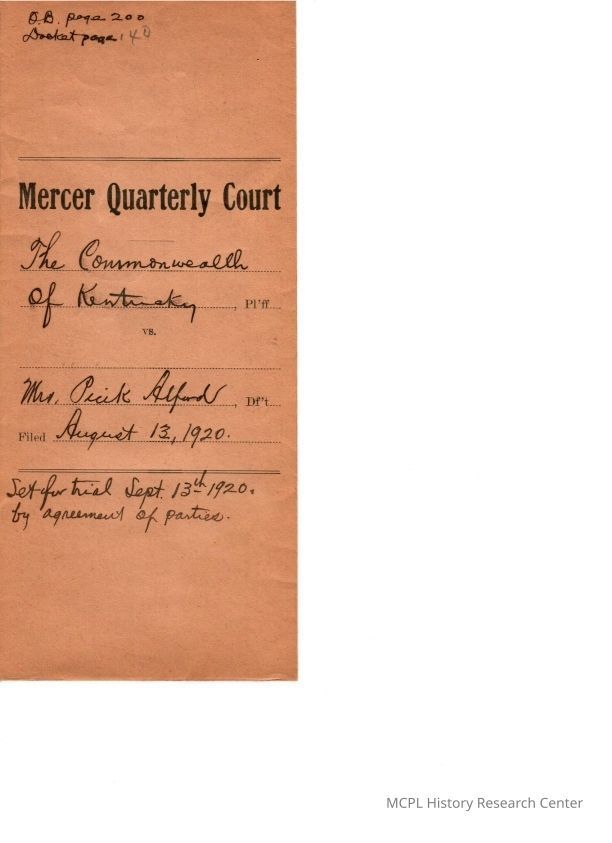 O.B. page 200
Docket page 140
Mercer Quarterly Court
The Commonwealth
of Kentucky, Pl'ff
vs.
Mrs. Alford, Df't
Filed August 13, 1920.
Set for trial Sept. 13th 1920.
by agreement of parties.
MCPL History Research Center